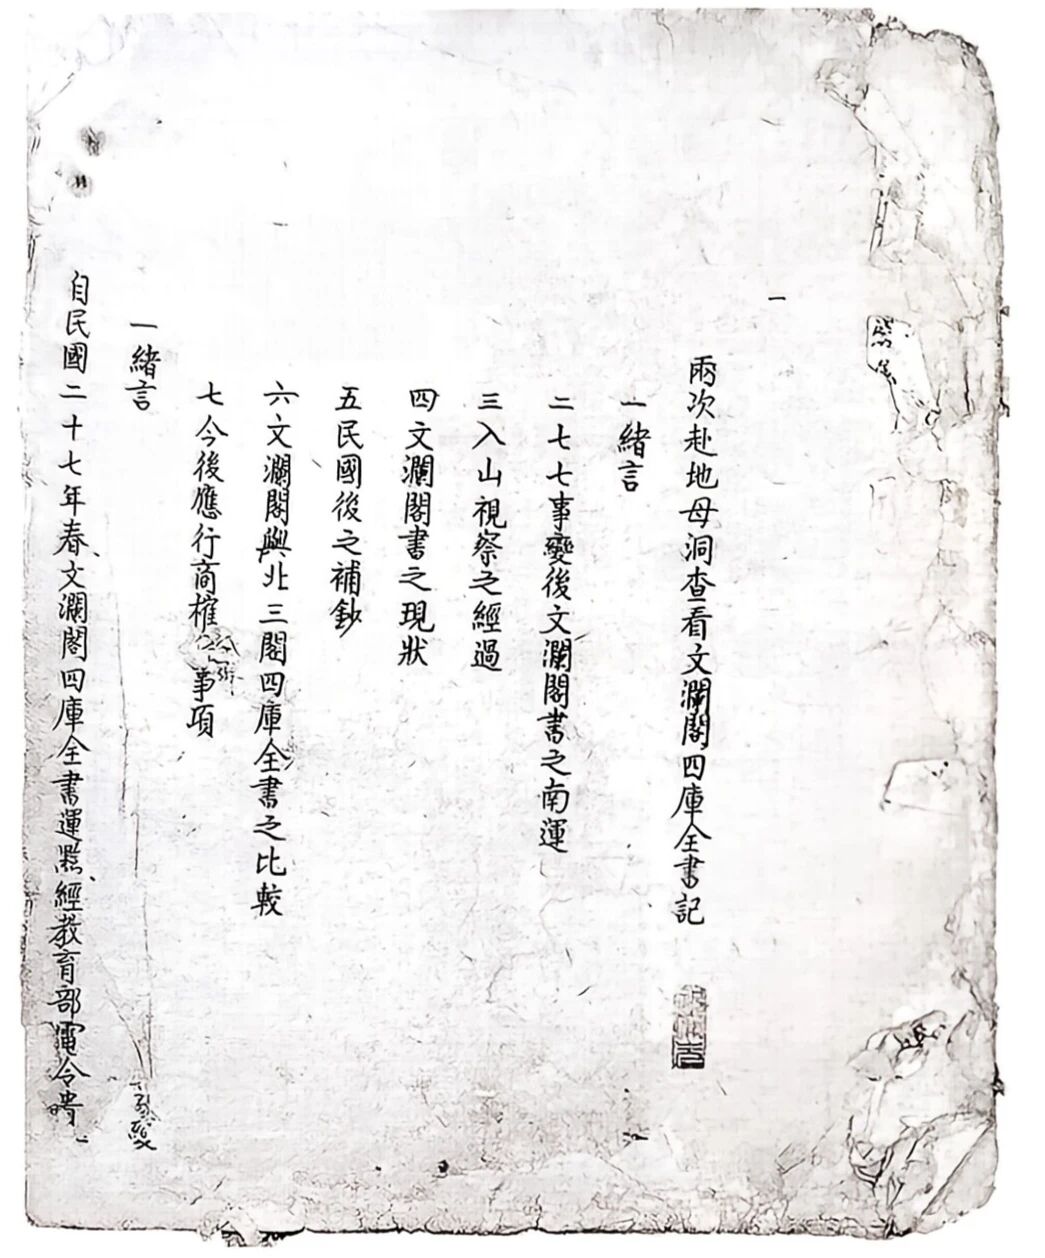 一
兩次赴地母洞查看文瀾閣四庫全書記
一緒言
二七七事變後文瀾閣書之南運
三入山視察之經過
四文瀾閣書之現狀
五民國後之補鈔
六文瀾閣與北三閣四庫全書之比較
七今後應行商榷事項
一緒言
自民國二十七年春文瀾閣四庫全書運黔經教育部電令貴